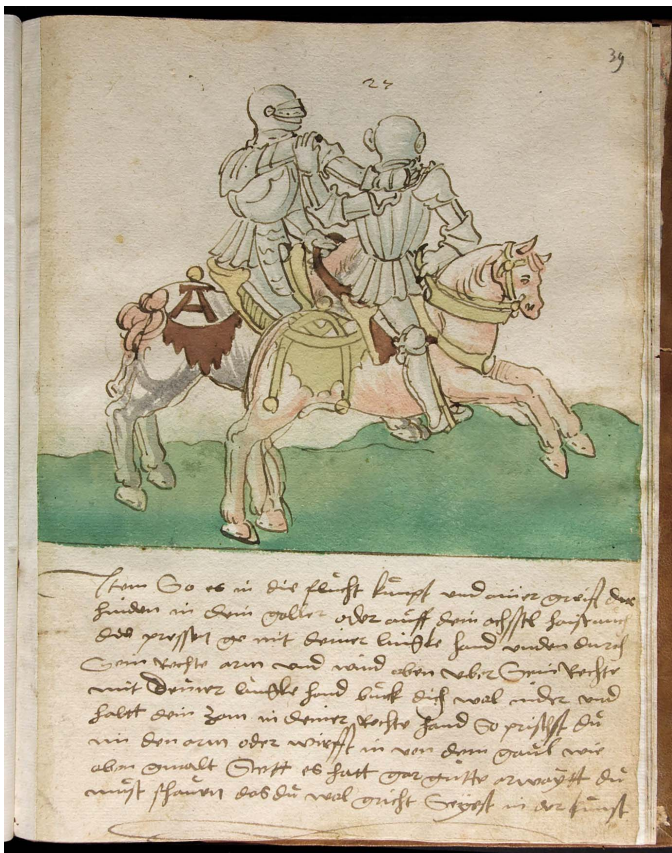 39
27
Item So es in die flucht kumpt und ainer greift dir
hinden in dein goller oder auff dein achssel
des mit deiner lincke hand unden durch
Sein Rechte arm und wind oben uber Sein Rechte
mit Deiner lincke hand buck dich wol nider und
haltt dein Zom in deiner Rechte hand So prichst du
im den arm oder wirfft in von dem gaul wie
oben gmalt Stett es hatt gar gutte du
must schauen das du wol gericht Seyest in der kunst